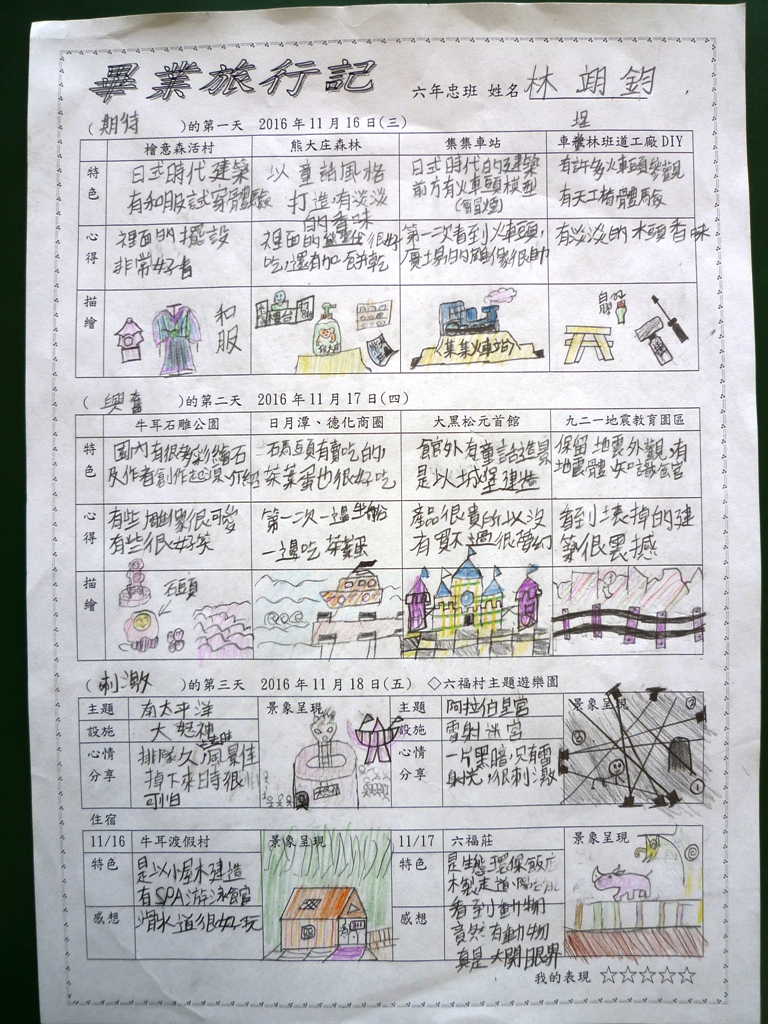 畢業旅行記
六年忠班 姓名 林翊鈞
(期待)的第一天 2016年11月16日(三)
檜意森活村 熊大庄森林 集集車站 車埕林班道工廠DIY
特色
日式時代建築
有和服試穿體驗
以童話風格
打造,有淡淡
的香味
日式時代的建築
前方有火車頭模型
(會冒煙)
有許多火車頭參觀
有天工椅體驗
心得
裡面的擺設
非常好看
裡面的
很好
吃,還有加餅乾
第一次看到火車頭,
廣場的雕像很帥
有淡淡的木頭香味
描繪
和服
集集火車站
(興奮)的第二天 2016年11月17日(四)
牛耳石雕公園 日月潭、德化商圈 大黑松元首館 九二一地震教育園區
特色
園內有很多彩繪石
及作者創作起源介紹
碼頭有賣吃的,
茶葉蛋也很好吃
館外有童話造景
是以城堡建造
保留地震外觀,有
地震體知識館
心得
有些雕像很可愛
有些很好笑
第一次一邊坐船
一邊吃茶葉蛋
產品很貴所以沒
有買不過很夢幻
看到壞掉的建
築很震撼
描繪
石頭
(刺激)的第三天 2016年11月18日(五) ◇六福村主題遊樂園
主題 南太平洋 景象呈現 主題 阿拉伯皇宮 景象呈現
設施 大怒神 設施 雷射迷宮
心情分享
排隊久,風景佳
掉下來時很
可怕
心情分享
一片黑暗,只有雷
射光,很刺激
住宿
11/16 牛耳渡假村 景象呈現 11/17 六福莊 景象呈現
特色
是以小屋木建造
有SPA游泳館
感想
滑水道很好玩
特色
是生態環保飯店
木製走道,陽台能
看到動物
感想
竟然有動物
真是大開眼界
我的表現 ☆☆☆☆☆